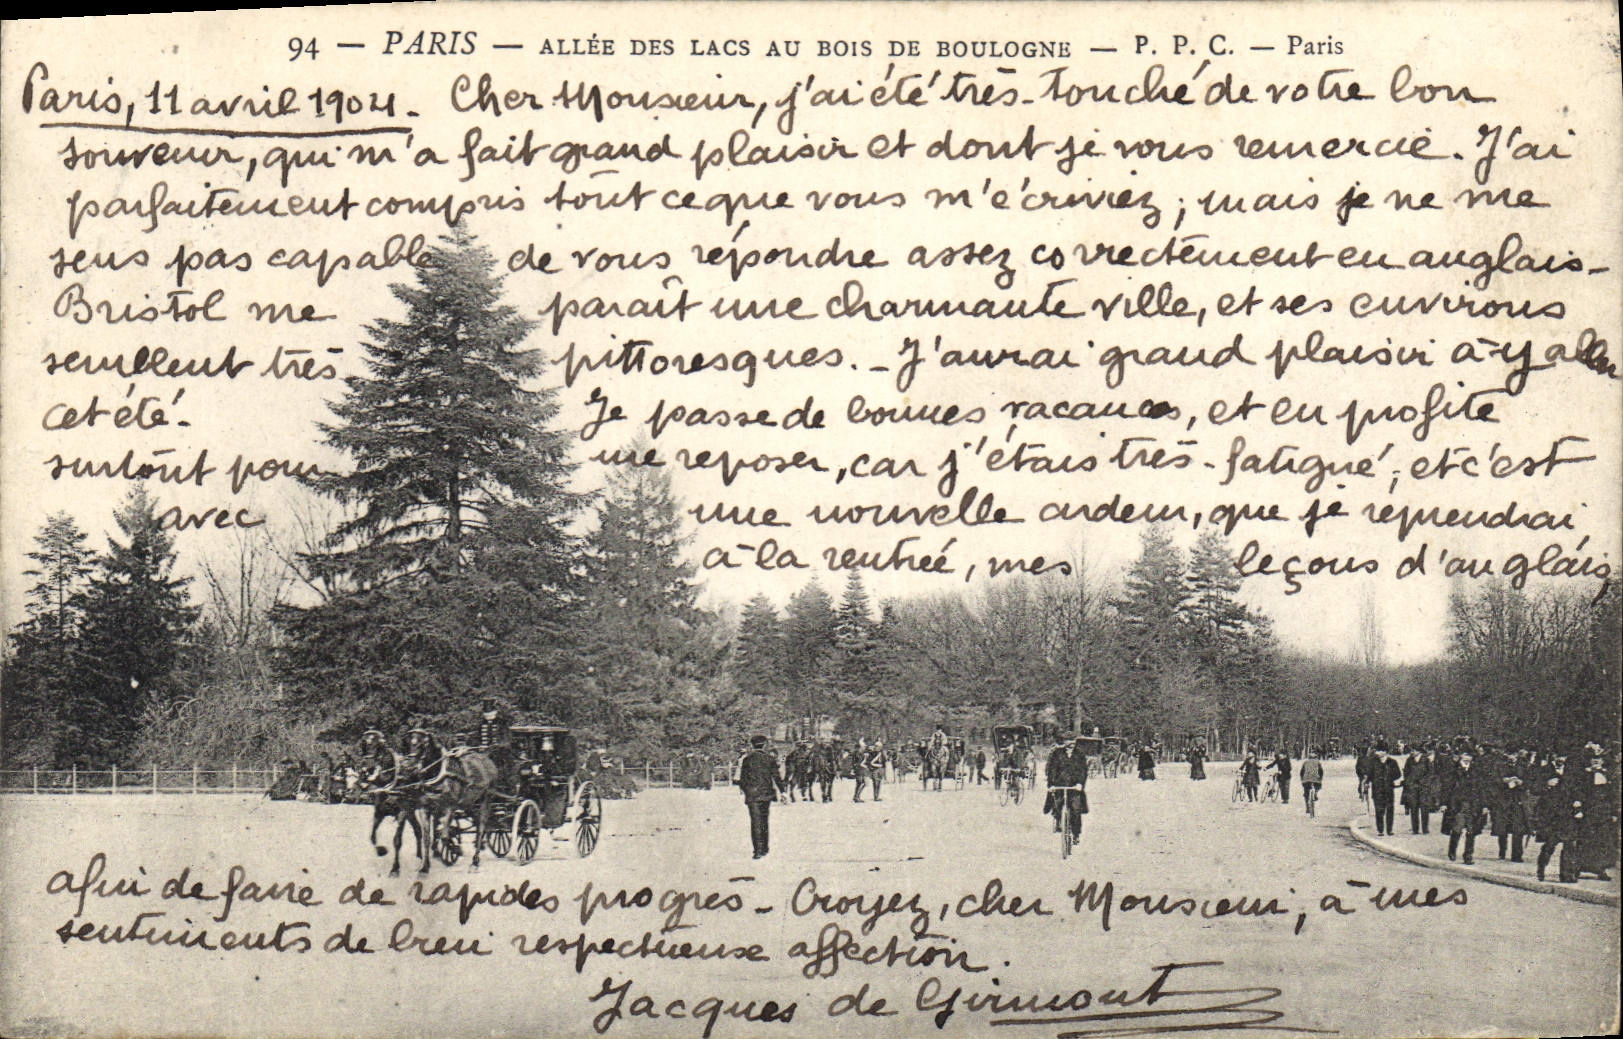 94 — PARIS — ALLÉE DES LACS AU BOIS DE BOULOGNE — P. P. C. — Paris
Paris, 11 avril 1904. Cher Monsieur, j'ai été très touché de votre bon
souvenir, qui m'a fait grand plaisir et dont je vous remercie. J'ai
parfaitement compris tout ce que vous m'écriviez ; mais je ne me
sens pas capable de vous répondre assez correctement en anglais.
Bristol me paraît une charmante ville, et ses environs
semblent très pittoresques. _ J'aurai grand plaisir à y aller
cet été. Je passe de bonnes vacances, et en profite
surtout pour me reposer, car j'étais très fatigué ; et c'est
avec une nouvelle ardeur, que je reprendrai
à la rentrée, mes leçons d'anglais,
afin de faire de rapides progrès _ Croyez, cher Monsieur, à mes
sentiments de bien respectueuse affection.
Jacques de Girmont